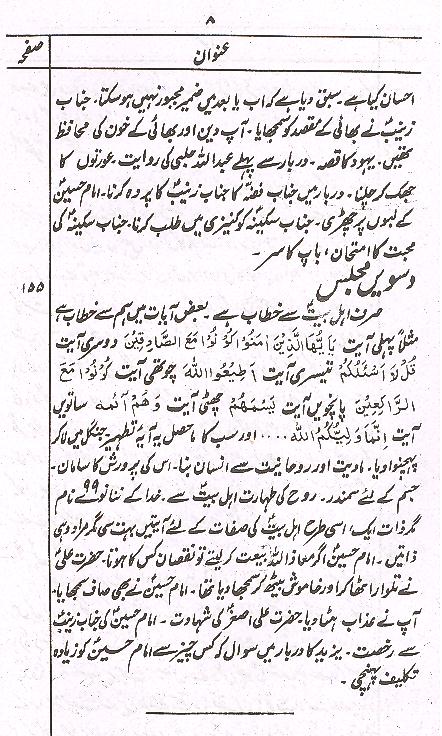 ۸
عنوان صفحہ
احسان کیا ہے۔ سبق دیا ہے کہ اب یا بعد میں ضمیر مجبور نہیں ہو سکتا۔ جناب
زینبؑ نے بھائی کے مقصد کو سمجھایا۔ آپ دین اور بھائی کے خون کی محافظ
تھیں۔ یہود کا قصہ۔ دربار سے پہلے عبداللہ حلبی کی روایت۔ عورتوں کا
جھک کر چلنا۔ دربار میں جناب فضہؑ کا جناب زینبؑ کا پردہ کرنا۔ امام حسینؑ
کے لبوں پر چھڑی۔ جناب سکینہؑ کو کنیزی میں طلب کرنا۔ جناب سکینہؑ کی
محبت کا امتحان، باپ کا سر۔
دسویں مجلس ۱۵۵
صرف اہل بیتؑ سے خطاب ہے۔ بعض آیات میں ہم سے خطاب ہے
مثلاً پہلی آیت یٰاَیُّھَا الَّذِیْنَ اٰمَنُوْا کُوْنُوْا مَعَ الصَّادِقِیْنَ دوسری آیت
قُلْ لَا اَسْئَلُکُمْ تیسری آیت اَطِیْعُوا اللہَ چوتھی آیت کُوْنُوْا مَعَ
الرَّاکِعِیْنَ پانچویں آیت چھٹی آیت وَھُمْ ائمہ ساتویں
آیت اِنَّمَا وَلِیُّکُمُ اللہُ .... اور سب کا ماحصل یہ آیۂ تطہیر۔ جنگل میں لا کر
پھینوا دیا۔ مادیت اور روحانیت سے انسان بنا۔ اس کی پرورش کا سامان۔
جسم کے لئے سمندر۔ روح کی طہارت اہل بیتؑ سے۔ خدا کے ننانوے ۹۹ نام
مگر ذات ایک، اسی طرح اہل بیتؑ کی صفات کے لئے آیتیں بہت سی مگر مراد وہی
ذاتیں۔ امام حسینؑ اگر معاذ اللہ بیعت کر لیتے تو نقصان کس کا ہوتا۔ حضرت علیؑ
نے تلوار اٹھا کر اور خاموش بیٹھ کر سمجھا دیا تھا۔ امام حسینؑ نے بھی صاف سمجھایا۔
آپ نے عذاب ہٹا دیا۔ حضرت علی اصغرؑ کی شہادت۔ امام حسینؑ کی جناب زینبؑ
سے رخصت۔ یزید کا دربار میں سوال کہ کس چیز سے امام حسینؑ کو زیادہ
تکلیف پہنچی۔